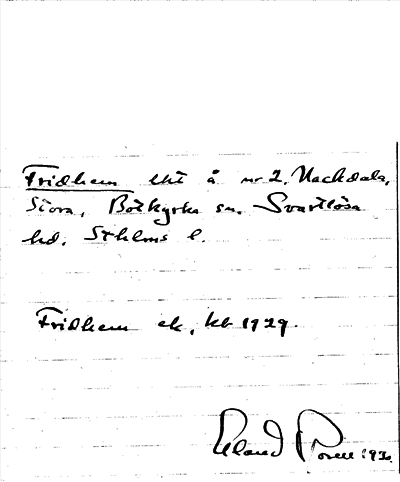 Fridhem lht å nr 2, Nackdala,
Stora, Botkyrka sn. Svartlösa
hd. Sthlms l.
Fridhem ek, kb 1929.
Roland Otterbjörk 1930